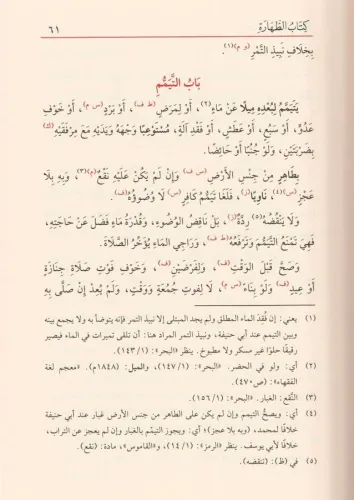 كِتَابُ الطَّهَارَةِ
٦١
بِخِلَافِ نَبِيذِ التَّمْرِ(و م)(١).
بَابُ التَّيَمُّمِ
يَتَيَمَّمُ لِبُعْدِهِ مِيلًا عَنْ مَاءٍ(٢)، أَوْ لِمَرَضٍ(ط ف)، أَوْ بَرْدٍ(س م)، أَوْ خَوْفِ
عَدُوٍّ، أَوْ سَبُعٍ، أَوْ عَطَشٍ، أَوْ فَقْدِ آلَةٍ، مُسْتَوْعِبًا وَجْهَهُ وَيَدَيْهِ مَعَ مِرْفَقَيْهِ(ك)
بِضَرْبَتَيْنِ، وَلَوْ جُنُبًا أَوْ حَائِضًا.
بِطَاهِرٍ مِنْ جِنْسِ الْأَرْضِ(س ف) وَإِنْ لَمْ يَكُنْ عَلَيْهِ نَقْعٌ(م)(٣)، وَبِهِ بِلَا
عَجْزٍ(س)(٤)، نَاوِيًا(ز)، فَلَغَا تَيَمُّمُ كَافِرٍ(س) لَا وُضُوؤُهُ(ف).
وَلَا يَنْقُضُهُ(٥) رِدَّةٌ(ز)، بَلْ نَاقِضُ الْوُضُوءِ، وَقُدْرَةُ مَاءٍ فَضَلَ عَنْ حَاجَتِهِ،
فَهِيَ تَمْنَعُ التَّيَمُّمَ وَتَرْفَعُهُ(ط ف)، وَرَاجِي الْمَاءِ يُؤَخِّرُ الصَّلَاةَ.
وَصَحَّ قَبْلَ الْوَقْتِ(ف)، وَلِفَرْضَيْنِ(ف)، وَخَوْفِ فَوْتِ صَلَاةِ جِنَازَةٍ
أَوْ عِيدٍ(ف) وَلَوْ بِنَاءً(س م)، لَا لِفَوْتِ جُمُعَةٍ وَوَقْتٍ، وَلَمْ يُعِدْ إِنْ صَلَّى بِهِ
(١) يعني: إن فُقِدَ الماء المطلق ولم يجد المبتلى إلا نبيذ التمر فإنه يتوضأ به ولا يجمع بينه
وبين التيمم عند أبي حنيفة، ونبيذ التمر المراد هنا: أن تلقى تميرات في الماء فيصير
رقيقًا حلوًا غير مسكر ولا مطبوخ. ينظر «البحر»: (١/١٤٣).
(٢) أي: ولو في الحضر. «البحر»: (١/١٤٧)، والميل: (١٨٤٨م). «معجم لغة
الفقهاء»: (ص٤٧٠).
(٣) النَّقع: الغبار. «البحر»: (١/١٥٦).
(٤) أي: ويصحُّ التيمم وإن لم يكن على الطاهر من جنس الأرض غبار عند أبي حنيفة
خلافًا لمحمد، (وبه بلا عجز) أي: ويجوز التيمم بالغبار وإن لم يعجز عن التراب،
خلافًا لأبي يوسف. ينظر «الرمز»: (١/١٤)، و«القاموس»، مادة: (نقع).
(٥) في (ظ): (تنقضه).